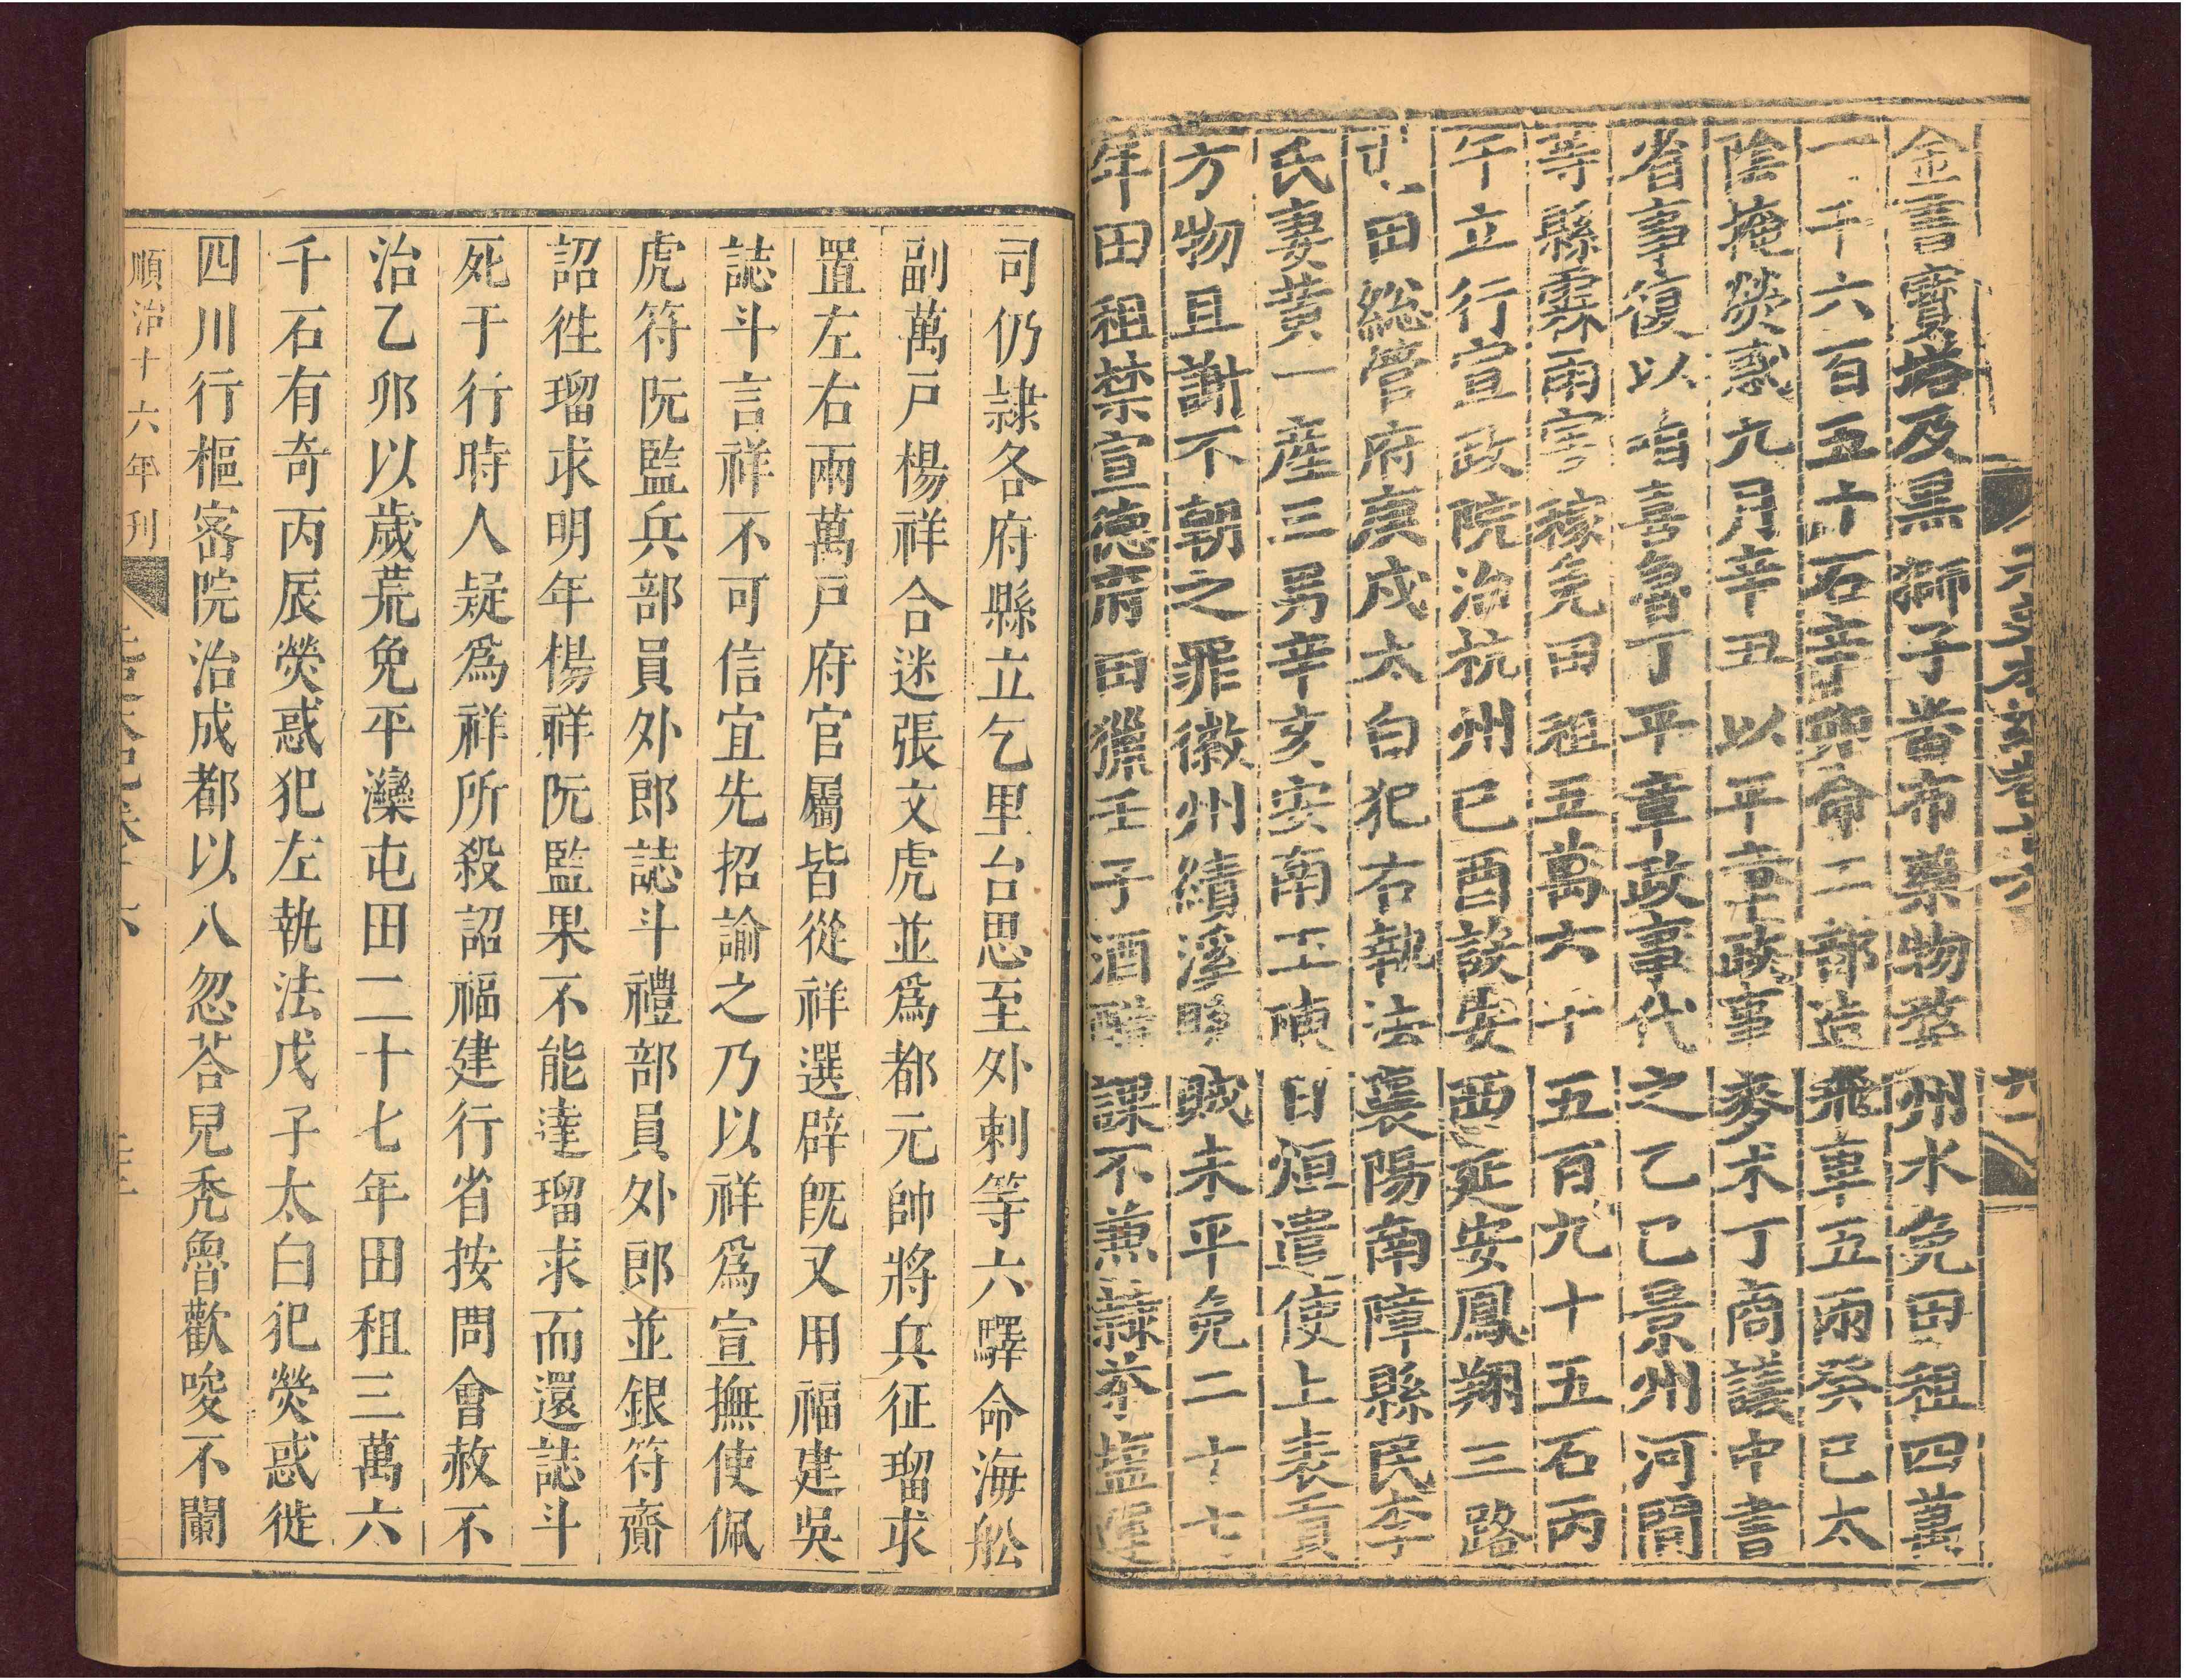 金書寶塔及黑獅子番布藥物婺州水免田租四萬
一千六百五十石辛卯命工部造飛車五兩癸巳太
陰掩熒惑九月辛丑以平章政事麥朮丁商議中書
省事復以咱喜魯丁平章政事代之乙巳景州河間
等縣霖雨害稼免田租五萬六千五百九十五石丙
午立行宣政院治杭州己酉設安西延安鳳翔三路
屯田總管府庚戌太白犯右執法襄陽南漳縣民李
氏妻黃一產三男辛亥安南王陳日烜遣使上表貢
方物且謝不朝之罪徽州績溪縣賊未平免二十七
年田租禁宣德府田獵壬子酒醋課不兼隸茶鹽運
元史本紀卷十六
司仍隸各府縣立乞里台思至外剌等六驛命海舩
副萬戶楊祥合迷張文虎並爲都元帥將兵征瑠求
置左右兩萬戶府官屬皆從祥選辟旣又用福建吳
誌斗言祥不可信宜先招諭之乃以祥爲宣撫使佩
虎符阮監兵部員外郎誌斗禮部員外郎並銀符齎
詔徃瑠求明年楊祥阮監果不能達瑠求而還誌斗
死于行時人疑爲祥所殺詔福建行省按問會赦不
治乙卯以歲荒免平灤屯田二十七年田租三萬六
千石有奇丙辰熒惑犯左執法戊子太白犯熒惑徙
四川行樞密院治成都以八忽荅兒禿魯歡唆不闌
順治十六年刊